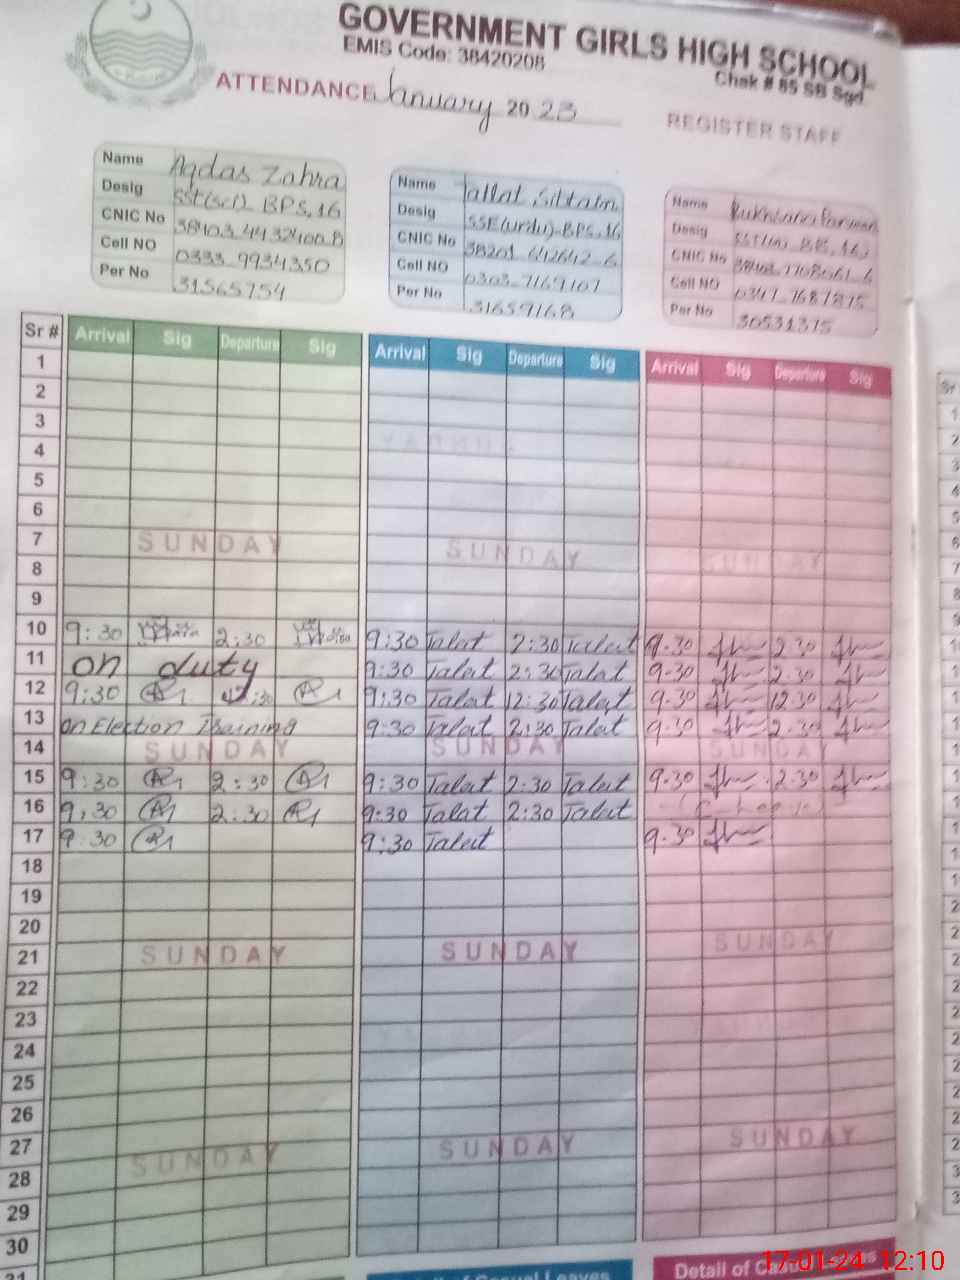 GOVERNMENT GIRLS HIGH SCHOOL
EMIS Code: 38420208
Chak # 85 SB Sgd
ATTENDANCE January 2023 REGISTER STAFF
Name Aqdas Zahra
Desig SST(sci) BPS,16
CNIC No
Cell NO 0333_9934350
Per No 31565754
Name Tallat
Desig SSE(urdu)-BPS,16
CNIC No 38201_
Cell NO 0303_7169107
Per No 31659168
Name
Desig BPS,16
CNIC No
Cell NO
Per No 30531315
Sr # Arrival Sig Departure Sig Arrival Sig Departure Sig Arrival Sig Departure Sig
1
2
3
4
5
6
7 SUNDAY SUNDAY SUNDAY
8
9
10 9:30 2:30 9:30 Talat 2:30 Talat 9.30 2.30
11 on duty 9:30 Talat 2:30 Talat 9.30 2.30
12 9:30 12:30 9:30 Talat 12:30 Talat 9.30 12.30
13 on Election Training 9:30 Talat 2:30 Talat 9.30 2.30
14 SUNDAY SUNDAY SUNDAY
15 9:30 2:30 9:30 Talat 2:30 Talat 9.30 2.30
16 9:30 2:30 9:30 Talat 2:30 Talat
17 9:30 9:30 Talat 9.30
18
19
20
21 SUNDAY SUNDAY SUNDAY
22
23
24
25
26
27 SUNDAY SUNDAY SUNDAY
28
29
30
31
of Casual Leaves
Detail of Casual Leaves
17-01-24 12:10